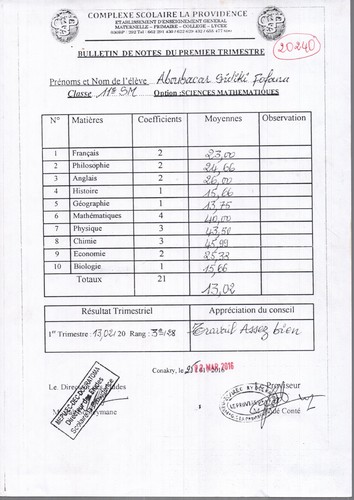 COMPLEXE SCOLAIRE LA PROVIDENCE
ETABLISSEMENT D'ENSEIGNEMENT GENERAL
MATERNELLE – PRIMAIRE – COLLEGE – LYCEE
BULLETIN DE NOTES DU PREMIER TRIMESTRE
20240
Prénoms et Nom de l'élève Aboubacar Sidiki Fofana
Classe 11e SM Option : SCIENCES MATHEMATIQUES
N° Matières Coefficients Moyennes Observation
1 Français 2 23,00
2 Philosophie 2 24,66
3 Anglais 2 26,00
4 Histoire 1 15,66
5 Géographie 1 13,75
6 Mathématiques 4 40,00
7 Physique 3 43,50
8 Chimie 3 45,99
9 Economie 2 25,33
10 Biologie 1 15,66
Totaux 21 13,02
Résultat Trimestriel Appréciation du conseil
1er Trimestre : 13,02/20 Rang : 3e/28 Travail Assez bien
Conakry, 22 MAR. 2016
Le Proviseur
Directeur des Etudes